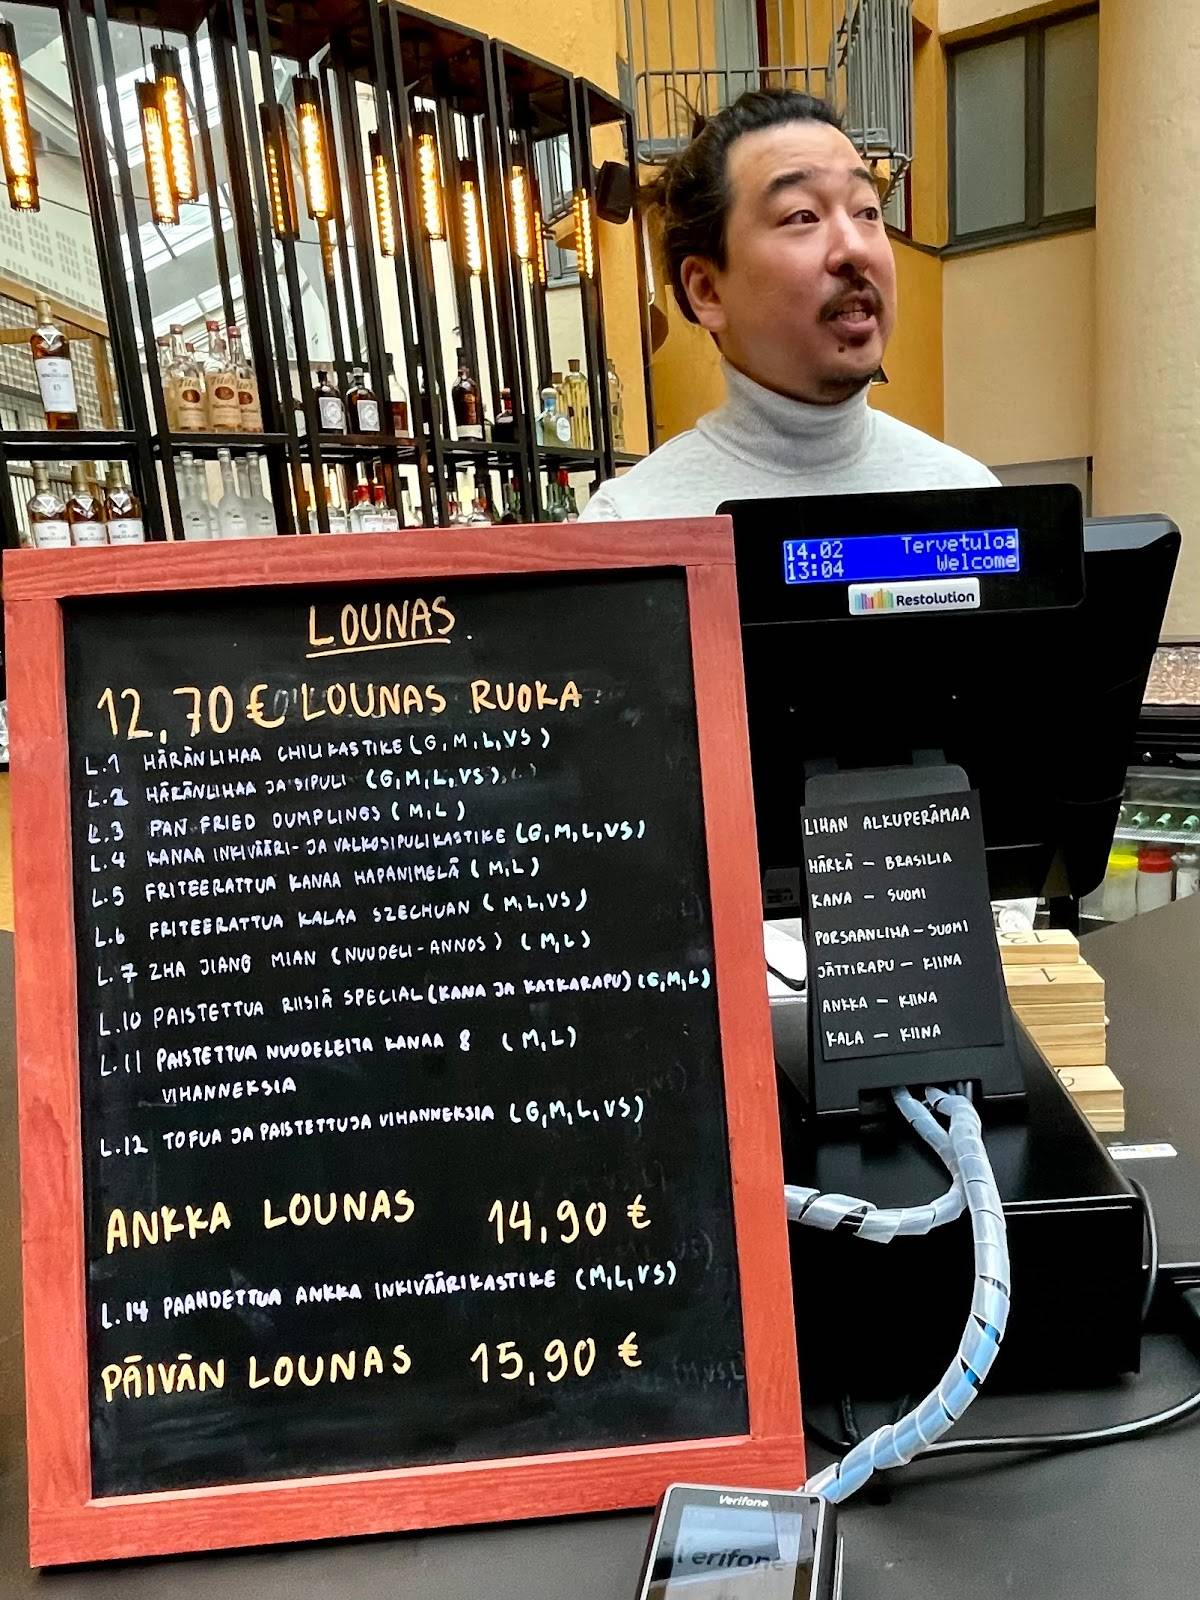 14.02 Tervetuloa
13:04 Welcome
Restolution
LOUNAS.
12,70 € LOUNAS RUOKA
L.1 HÄRÄNLIHAA CHILIKASTIKE (G, M, L, VS)
L.2 HÄRÄNLIHAA JA SIPULI (G, M, L, VS)
L.3 PAN FRIED DUMPLINGS (M, L)
L.4 KANAA INKIVÄÄRI- JA VALKOSIPULIKASTIKE (G, M, L, VS)
L.5 FRITEERATTUA KANAA HAPANIMELÄ (M, L)
L.6 FRITEERATTUA KALAA SZECHUAN (M, L, VS)
L.7 ZHA JIANG MIAN (NUUDELI-ANNOS) (M, L)
L.10 PAISTETTUA RIISIÄ SPECIAL (KANA JA KATKARAPU) (G, M, L)
L.11 PAISTETTUA NUUDELEITA KANAA & (M, L)
VIHANNEKSIA
L.12 TOFUA JA PAISTETTUJA VIHANNEKSIA (G, M, L, VS)
ANKKA LOUNAS 14,90 €
L.14 PAAHDETTUA ANKKA INKIVÄÄRIKASTIKE (M, L, VS)
PÄIVÄN LOUNAS 15,90 €
LIHAN ALKUPERÄMAA
HÄRKÄ – BRASILIA
KANA – SUOMI
PORSAANLIHA – SUOMI
JÄTTIRAPU – KIINA
ANKKA – KIINA
KALA – KIINA
Verifone
Verifone
Tito's